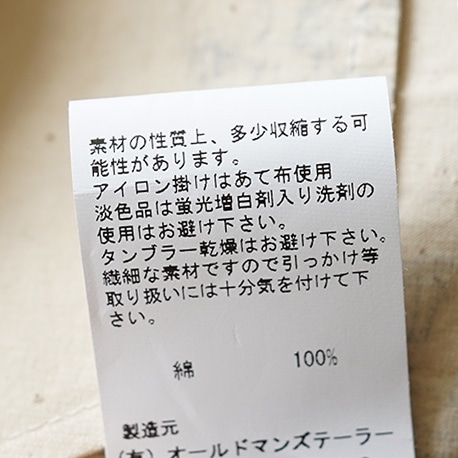 素材の性質上、多少収縮する可
能性があります。
アイロン掛けはあて布使用
淡色品は蛍光増白剤入り洗剤の
使用はお避け下さい。
タンブラー乾燥はお避け下さい。
繊細な素材ですので引っかけ等
取り扱いには十分気を付けて下
さい。
綿 100%
製造元
(有)オールドマンズテーラー